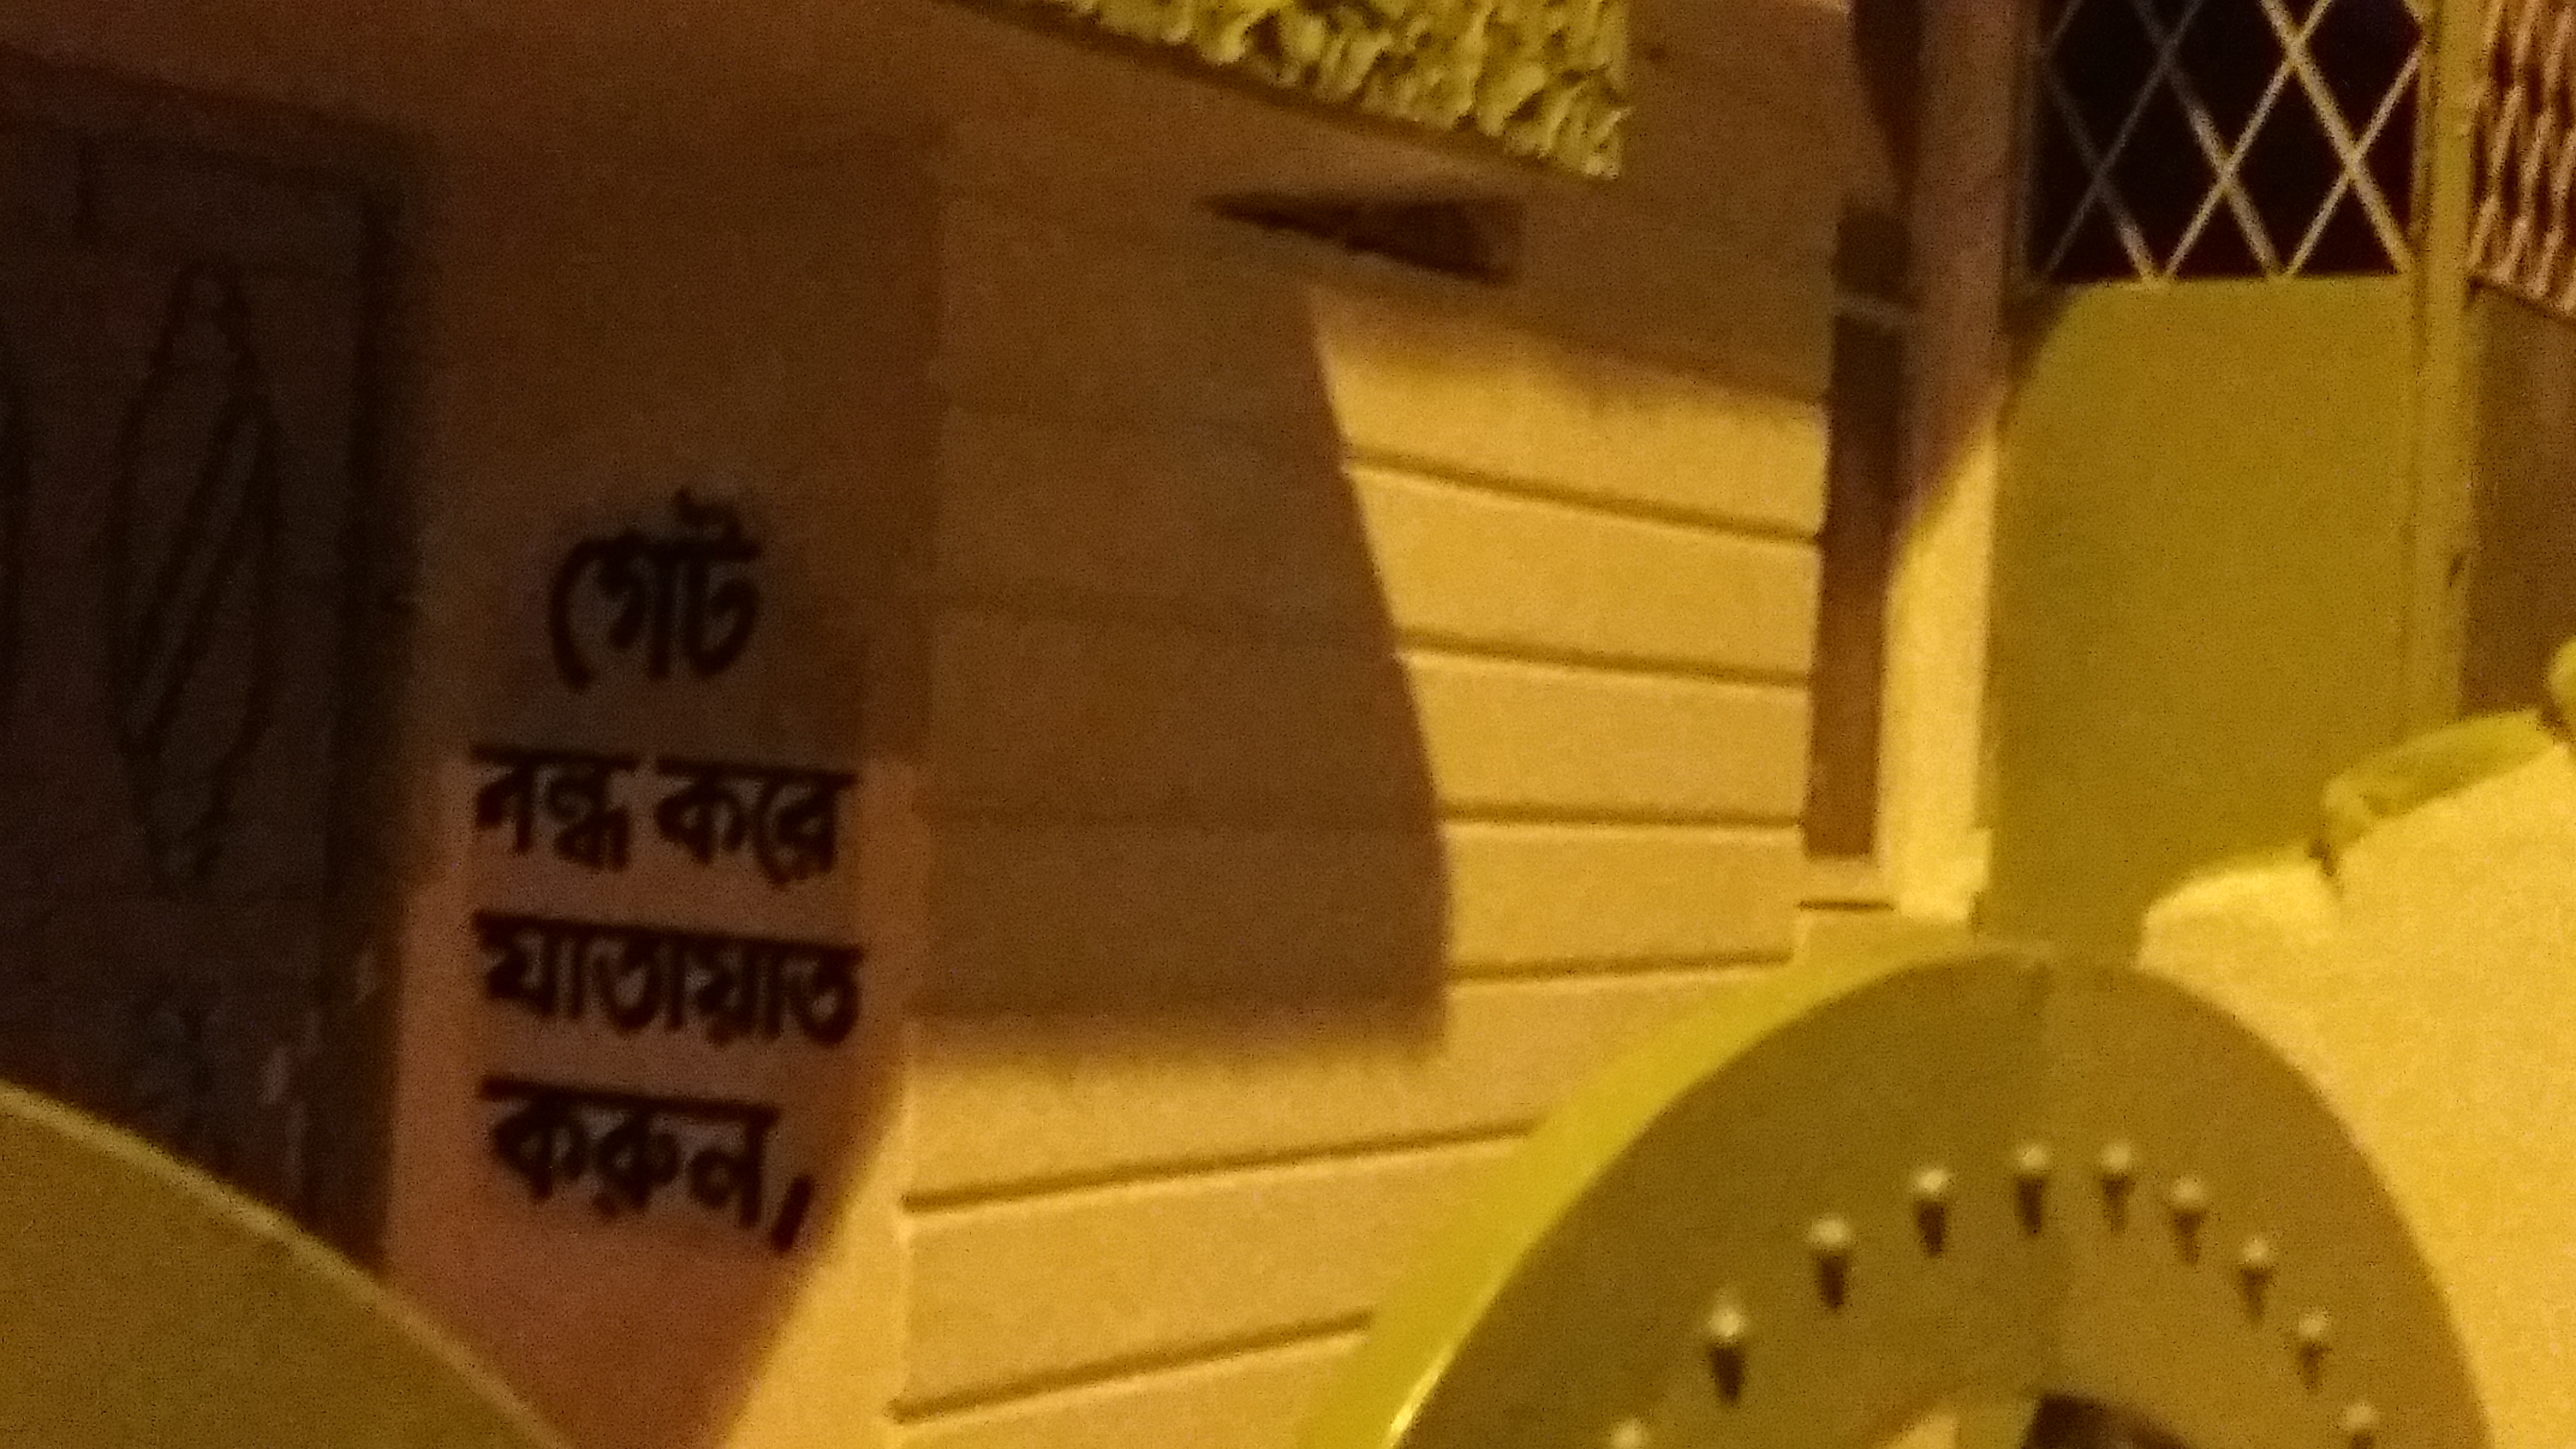 গেট
বন্ধ করে
যাতায়াত
করুন।